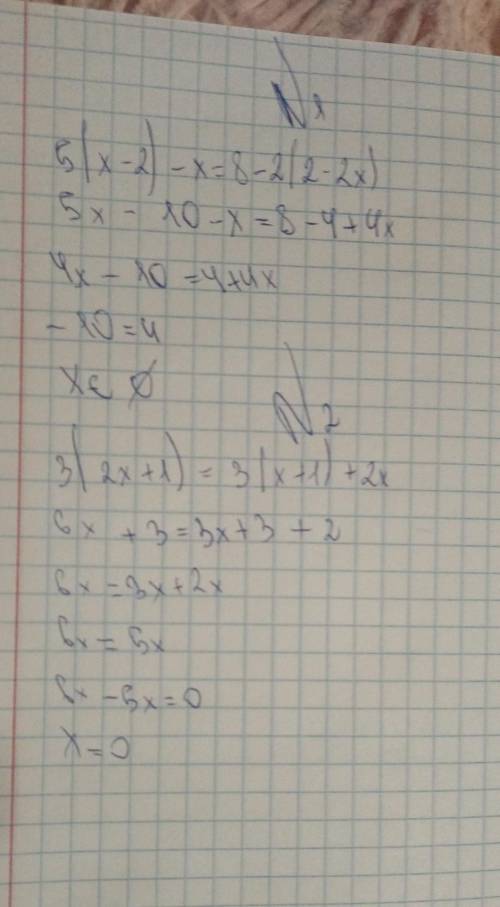 №1
5(x-2)-x=8-2(2-2x)
5x-10-x=8-4+4x
4x-10=4+4x
-10=4
x∈∅
№2
3(2x+1)=3(x+1)+2x
6x+3=3x+3+2
6x=3x+2x
6x=5x
6x-5x=0
x=0